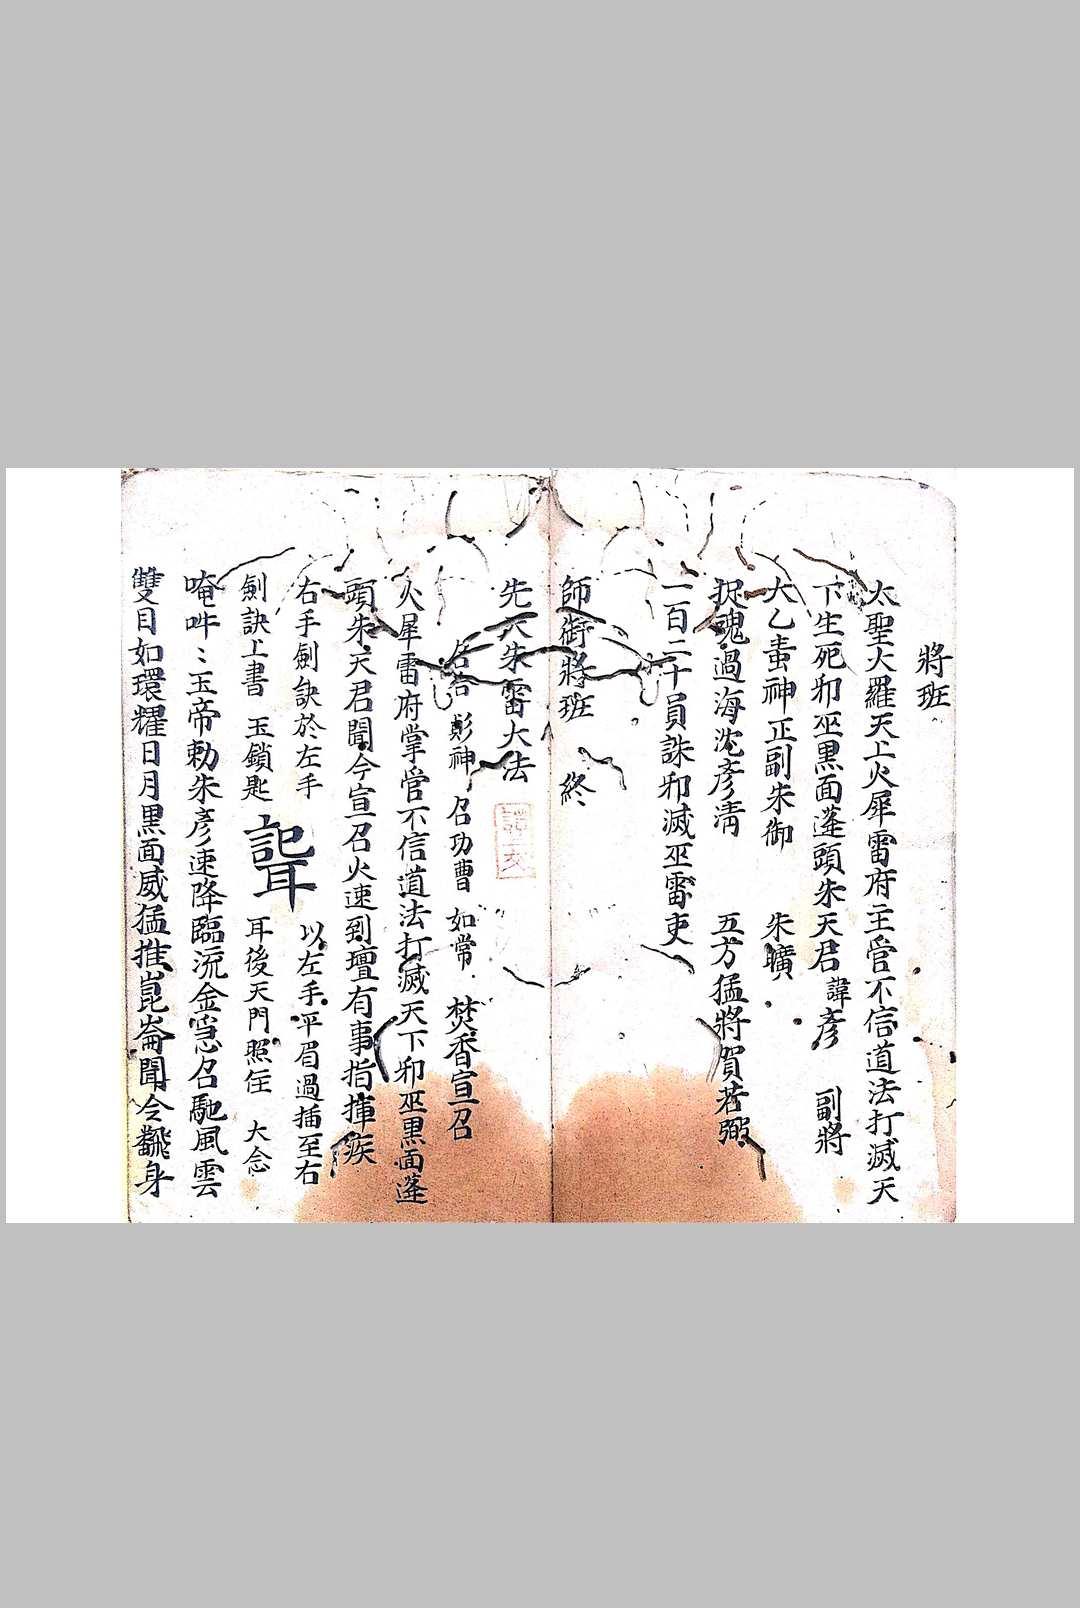 將班
太聖大羅天上火犀雷府主管不信道法打滅天
下生死卭巫黒面蓬頭朱天君諱彦　副將
大乙蚩神正副朱御　朱曠
捉魂過海沈彥清　五方猛將賀若弼
一百二十員誅卭滅巫雷吏
師御將班　終
先天朱雷大法
啓告　影神　召功曹　如常　焚香宣召
火犀雷府掌管不信道法打滅天下卭巫黒面蓬
頭朱天君聞今宣召火速到壇有事指揮疾
右手劍訣於左手　以左手平眉過插至右
劍訣上書　玉鎖匙　耳後天門照在　大念
唵吽〻玉帝勅朱彥速降臨流金急召馳風雲
雙目如環耀日月黒面威猛推崑崙聞令飜身